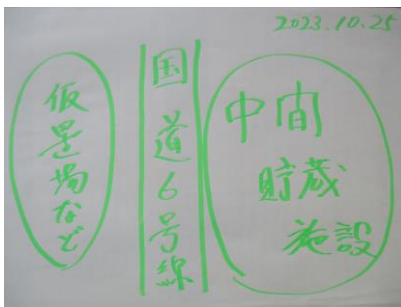 2023.10.25
仮置場など
国道6号線
中間
貯蔵
施設